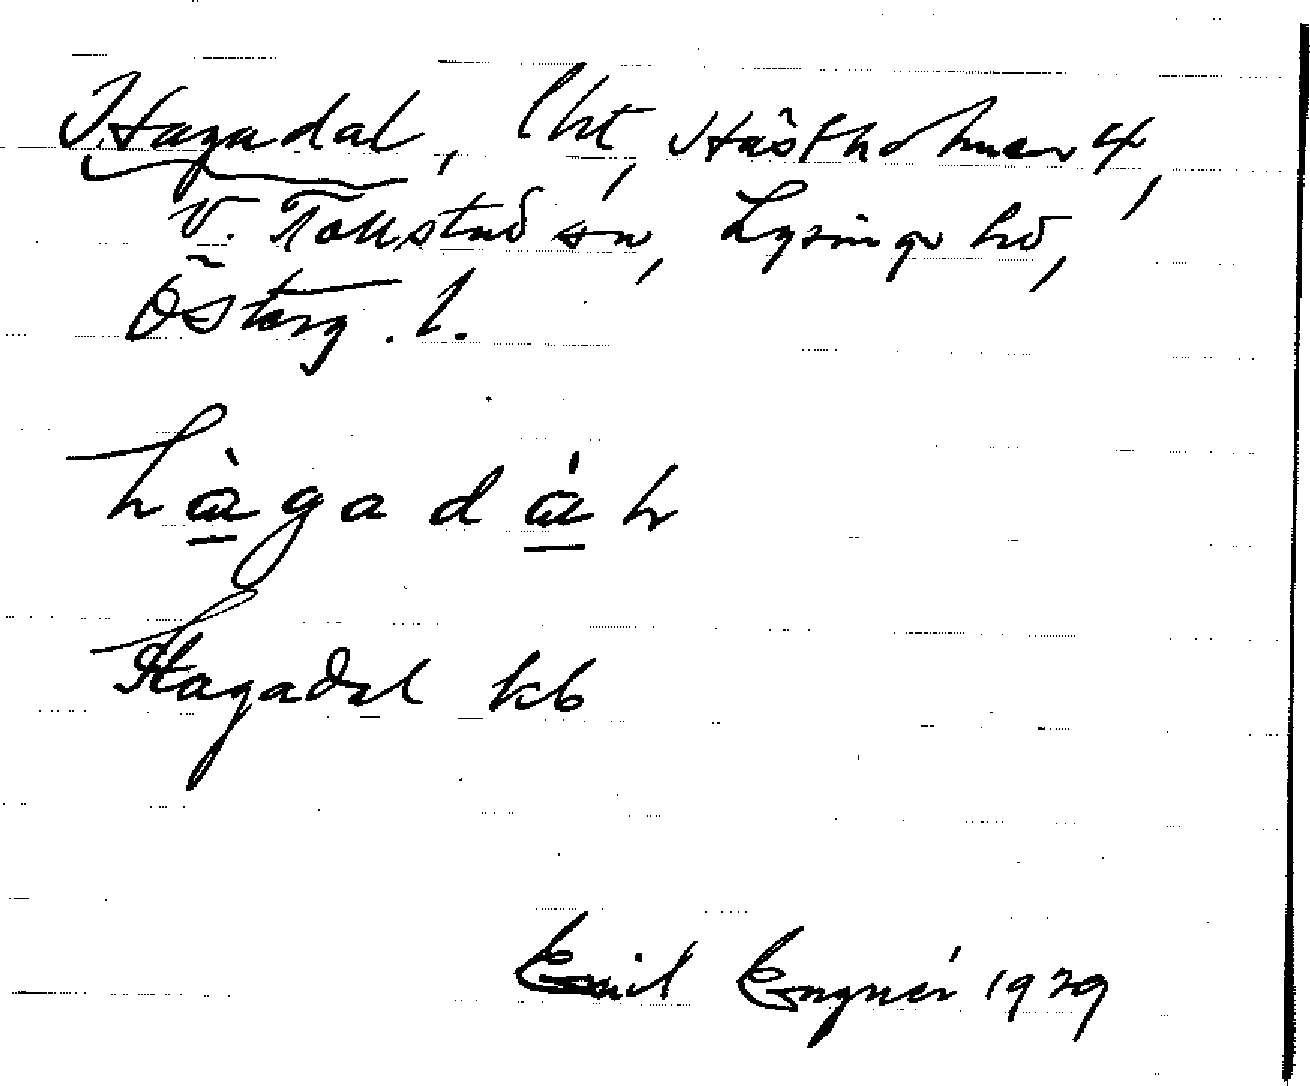 Hagadal, lht, Hästholmen 4,
V. Tollstad sn, Lysings hd,
Österg. l.
hàgadál
Hagadal kb
Emil Engnér 1929